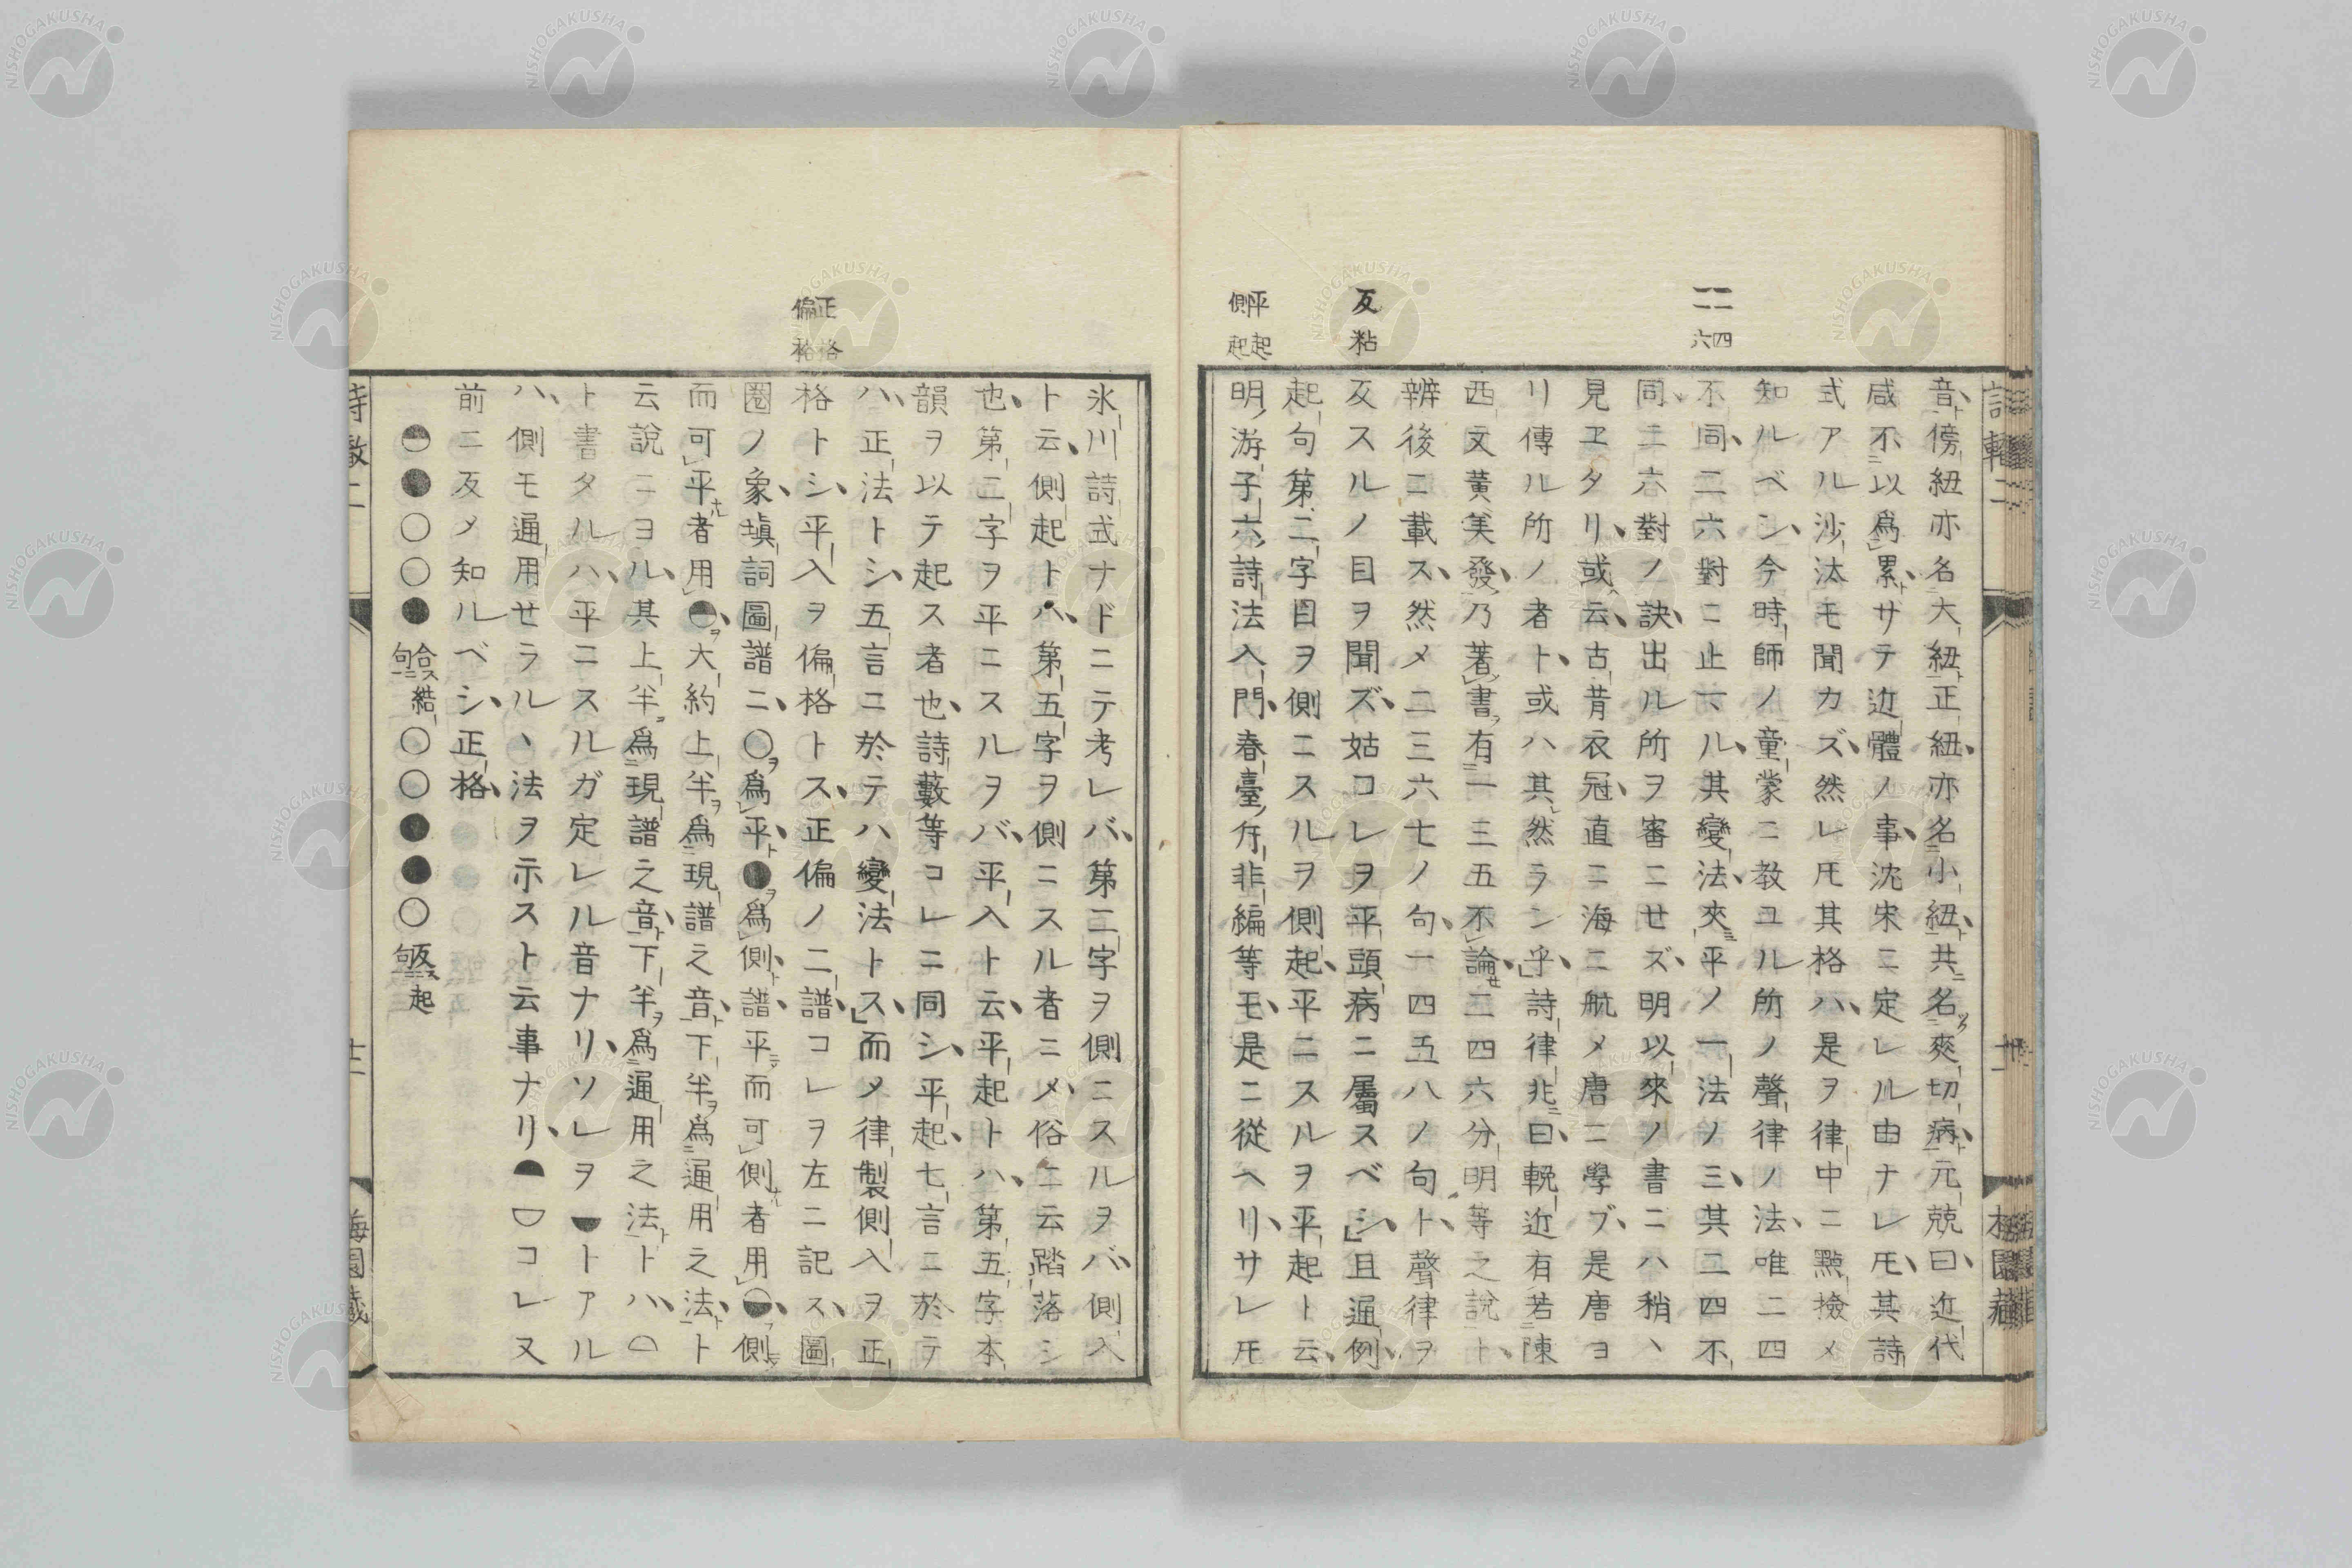 二四
二六
反粘
平起
側起
音、傍紐亦名大紐正紐、亦名小紐、共名爽切病、元兢曰、近代
咸不以爲累、サテ近體ノ事、沈宋ニ定レル由ナレ𪜈、其詩
式アル沙汰モ聞カズ、然レ𪜈其格ハ、是ヲ律中ニ㸃撿メ
知ルベシ、今時師ノ童蒙ニ教ユル所ノ聲律ノ法、唯二四
不同、二六對ニ止マル、其變法、夾平ノ一法ノ三、其二四不
同、二六對ノ訣、出ル所ヲ審ニセズ、明以來ノ書ニハ稍ヽ
見エタリ、或云、古昔衣冠、直ニ海ニ航メ唐ニ學ブ、是唐ヨ
リ傳ル所ノ者ト、或ハ其然ラン乎、詩律兆曰、輓近有若陳
西文黄美發、乃著書有一三五不論、二四六分明等之說ト、
辨後ニ載ス、然メ二三六七ノ句、一四五八ノ句ト、聲律ヲ
反スルノ目ヲ聞ズ、姑コレヲ平頭病ニ屬スベシ、且通例、
起句第二字目ヲ側ニスルヲ側起、平ニスルヲ平起ト云、
明游子六詩法入門、春臺斥非編等モ、是ニ從ヘリ、サレ𪜈
梅園藏
正格
偏格
氷川詩式ナドニテ考レバ、第二字ヲ側ニスルヲバ、側入
ト云、側起トハ、第五字ヲ側ニスル者ニメ、俗ニ云踏落シ
也、第二字ヲ平ニスルヲバ、平入ト云、平起トハ、第五字本
韻ヲ以テ起ス者也、詩藪等コレニ同シ、平起、七言ニ於テ
ハ、正法トシ、五言ニ於テハ變法トス、而メ律製側入ヲ正
格トシ、平入ヲ偏格トス、正偏ノ二譜、コレヲ左ニ記ス、圖
圏ノ象、塡詞圖譜ニ、○爲平、●爲側、譜平而可側者用◒、側
而可平者用◓、大約上半爲現譜之音、下半爲通用之法ト
云說ニヨル、其上半爲現譜之音、下半爲通用之法トハ、◠
ト書タルハ、平ニスルガ定レル音ナリ、ソレヲ◡トアル
ハ、側モ通用セラルヽ法ヲ示スト云事ナリ、◠◡コレ又
前ニ反メ知ルベシ、正格、
◓●○○●合句ス結○○●●○反句ス起
詩轍二
十二
梅園藏